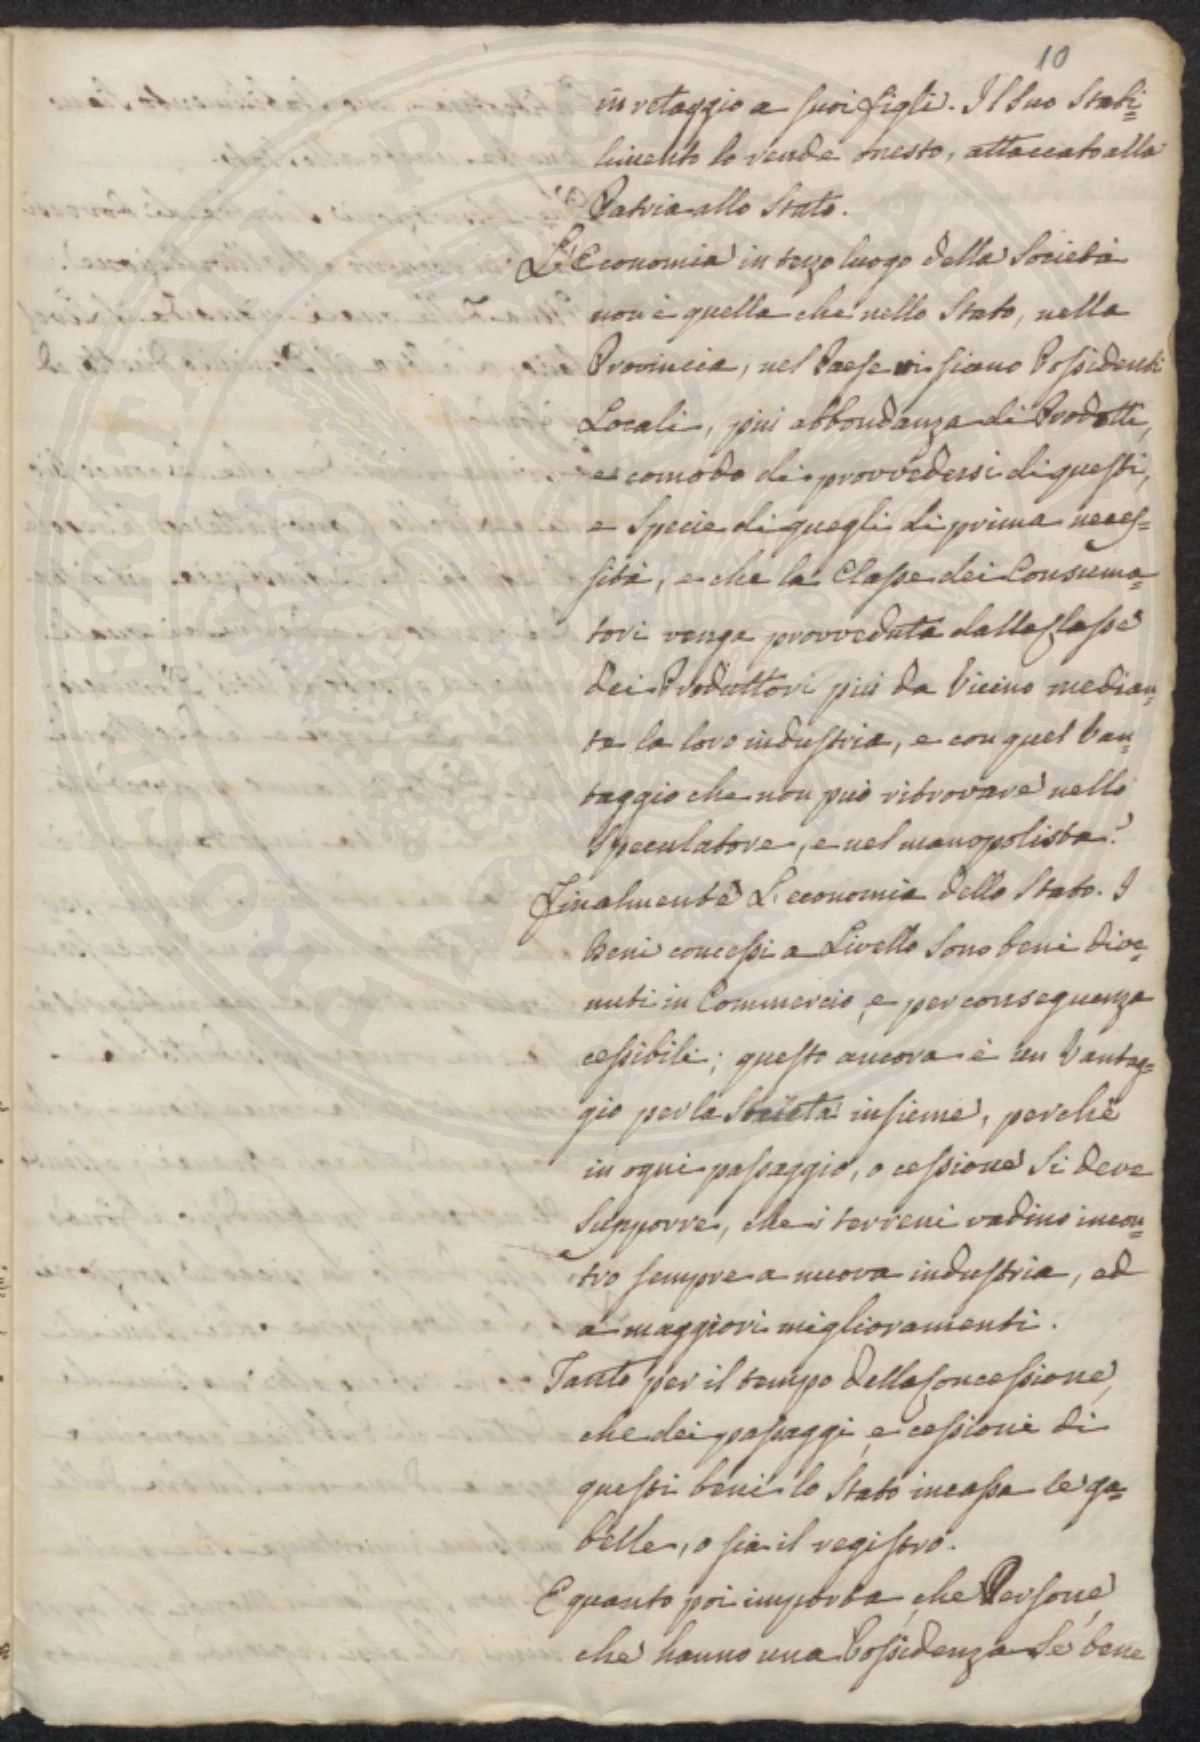 10
in retaggio a suoi figli. Il suo Stabi=
limento lo rende onesto, attaccato alla
Patria allo Stato.
L'Economia in terzo luogo della Società
non è quella che nello Stato, nella
Provincia, nel Paese vi siano Possidenti
Locali, più abbondanza di Prodotti,
e comodo di provvedersi di questi,
e specie di quegli di prima neces=
sità, e che la Classe dei Consuma=
tori venga provveduta dalla Classe
dei Produttori più da Vicino median=
te la loro industria, e con quel Van=
taggio che non può ritrovare nello
Speculatore, e nel manopolista?
Finalmente L'economia dello Stato. I
Beni concessi a Livello sono beni dive=
nuti in Commercio, e per conseguenza
cessibili; questo ancora è un Vantag=
gio per la Società insieme, perchè
in ogni passaggio, o cessione si deve
supporre, che i terreni vadino incon=
tro sempre a nuova industria, ed
a maggiori miglioramenti.
Tanto per il tempo della Concessione,
che dei passaggi, e cessioni di
questi beni lo Stato incassa le ga=
belle, o sia il registro.
E quanto poi importa, che Persone,
che hanno una Possidenza se bene